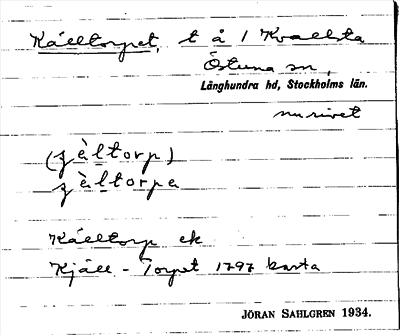 Källtorpet, t å 1 Kvallsta
Östuna sn,
Långhundra hd, Stockholms län.
nu rivet
(ʒæ̀ltorp)
ʒæ̀ltorpa
Källtorp ek
Kjäll-Torpet 1797 karta
JÖRAN SAHLGREN 1934.